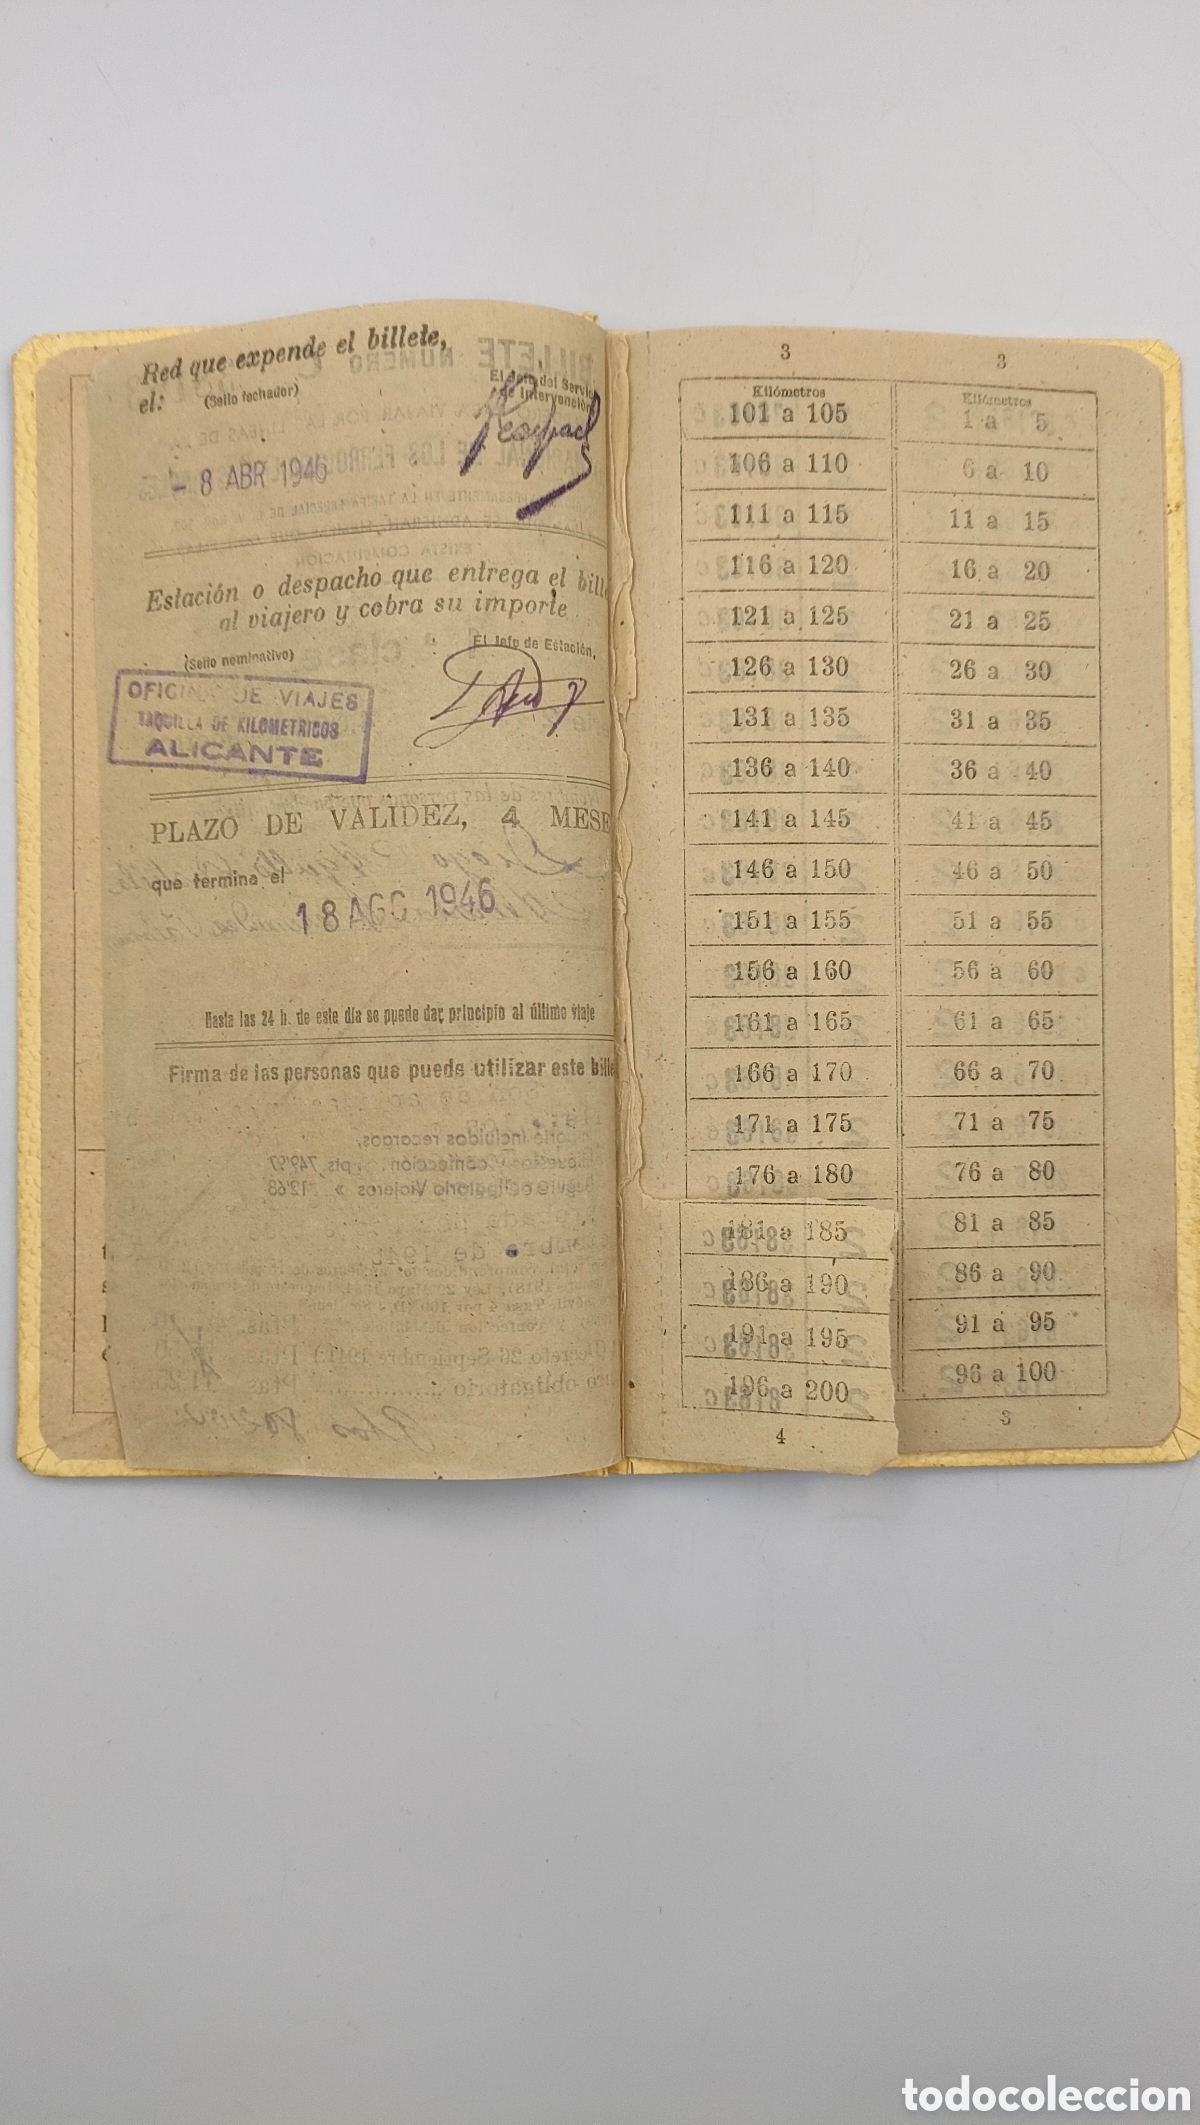 Red que expende el billete,
el:
(Sello fechador)
El Jefe del Servicio
de Intervención,
- 8 ABR 1946
Estación o despacho que entrega el bille
al viajero y cobra su importe
(Sello nominativo)
El Jefe de Estación,
OFICINA DE VIAJES
TAQUILLA DE KILOMETRICOS
ALICANTE
PLAZO DE VALIDEZ, 4 MESE
que termina el
18 AGO 1946
Hasta las 24 h. de este día se puede dar principio al último viaje
Firma de las personas que puede utilizar este bille
3
Kilómetros
101 a 105
106 a 110
111 a 115
116 a 120
121 a 125
126 a 130
131 a 135
136 a 140
141 a 145
146 a 150
151 a 155
156 a 160
161 a 165
166 a 170
171 a 175
176 a 180
181 a 185
186 a 190
191 a 195
196 a 200
4
3
Kilómetros
1 a 5
6 a 10
11 a 15
16 a 20
21 a 25
26 a 30
31 a 35
36 a 40
41 a 45
46 a 50
51 a 55
56 a 60
61 a 65
66 a 70
71 a 75
76 a 80
81 a 85
86 a 90
91 a 95
96 a 100
3
todocoleccion